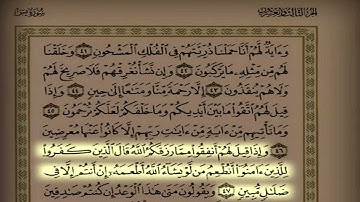 الجزء الثالث والعشرون
سورة يس
وَءَايَةٌ لَّهُمْ أَنَّا حَمَلْنَا ذُرِّيَّتَهُمْ فِي الْفُلْكِ الْمَشْحُونِ ٤١ وَخَلَقْنَا
لَهُم مِّن مِّثْلِهِ مَا يَرْكَبُونَ ٤٢ وَإِن نَّشَأْ نُغْرِقْهُمْ فَلَا صَرِيخَ لَهُمْ
وَلَا هُمْ يُنقَذُونَ ٤٣ إِلَّا رَحْمَةً مِّنَّا وَمَتَاعًا إِلَىٰ حِينٍ ٤٤ وَإِذَا
قِيلَ لَهُمُ اتَّقُوا مَا بَيْنَ أَيْدِيكُمْ وَمَا خَلْفَكُمْ لَعَلَّكُمْ تُرْحَمُونَ ٤٥
وَمَا تَأْتِيهِم مِّنْ ءَايَةٍ مِّنْ ءَايَاتِ رَبِّهِمْ إِلَّا كَانُوا عَنْهَا مُعْرِضِينَ
٤٦ وَإِذَا قِيلَ لَهُمْ أَنفِقُوا مِمَّا رَزَقَكُمُ اللَّهُ قَالَ الَّذِينَ كَفَرُوا
لِلَّذِينَ ءَامَنُوا أَنُطْعِمُ مَن لَّوْ يَشَاءُ اللَّهُ أَطْعَمَهُ إِنْ أَنتُمْ إِلَّا فِي
ضَلَالٍ مُّبِينٍ ٤٧ وَيَقُولُونَ مَتَىٰ هَٰذَا الْوَعْدُ إِن كُنتُمْ صَادِقِينَ